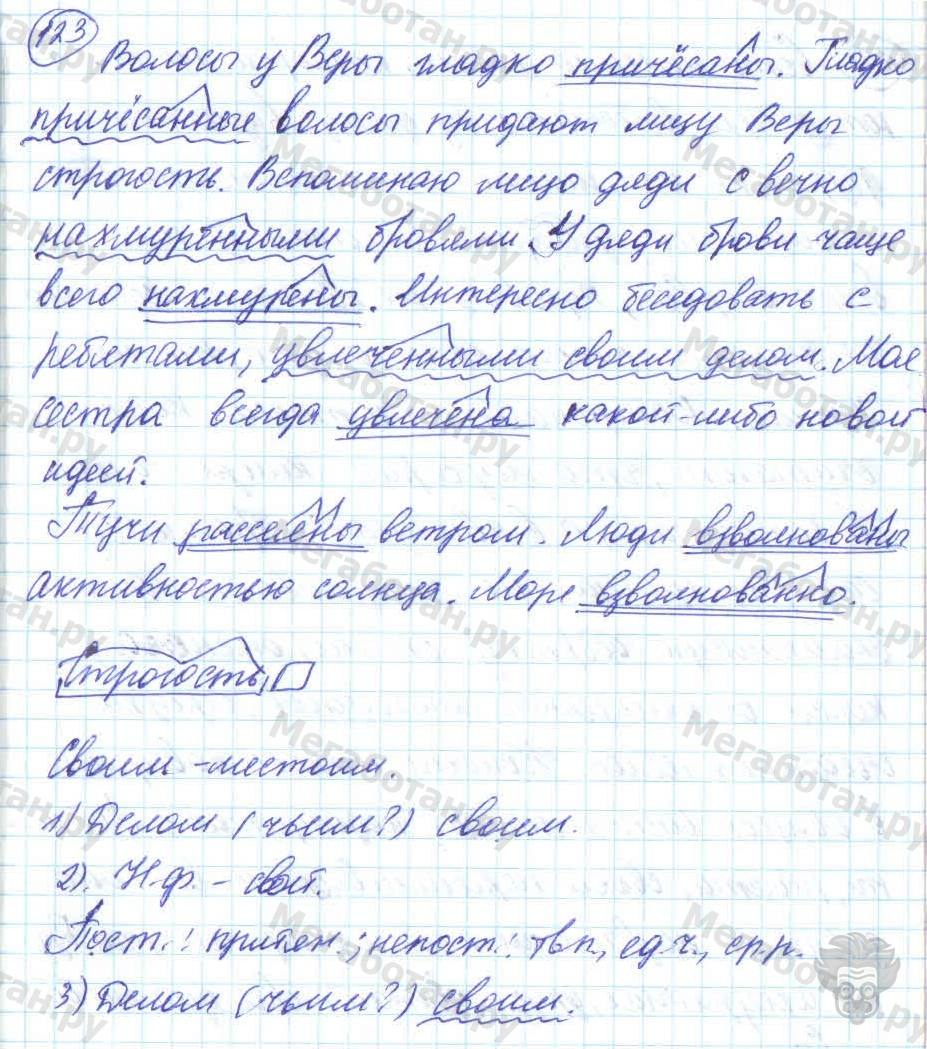 123
Волосы у Веры гладко причёсаны. Гладко
причёсанные волосы придают лицу Веры
строгость. Вспоминаю лицо дяди с вечно
нахмуренными бровями. У дяди брови чаще
всего нахмурены. Интересно беседовать с
ребятами, увлеченными своим делом. Моя
сестра всегда увлечена какой-либо новой
идеей.
Тучи рассеяны ветром. Люди взволнованы
активностью солнца. Море взволнованно.
Строгость,
Своим - местоим.
1) Делом (чьим?) своим.
2). Н.ф. - свой.
Пост.: притяж.; непост.: тв.п., ед.ч., ср.р.
3) Делом (чьим?) своим.
Мегаботан.ру